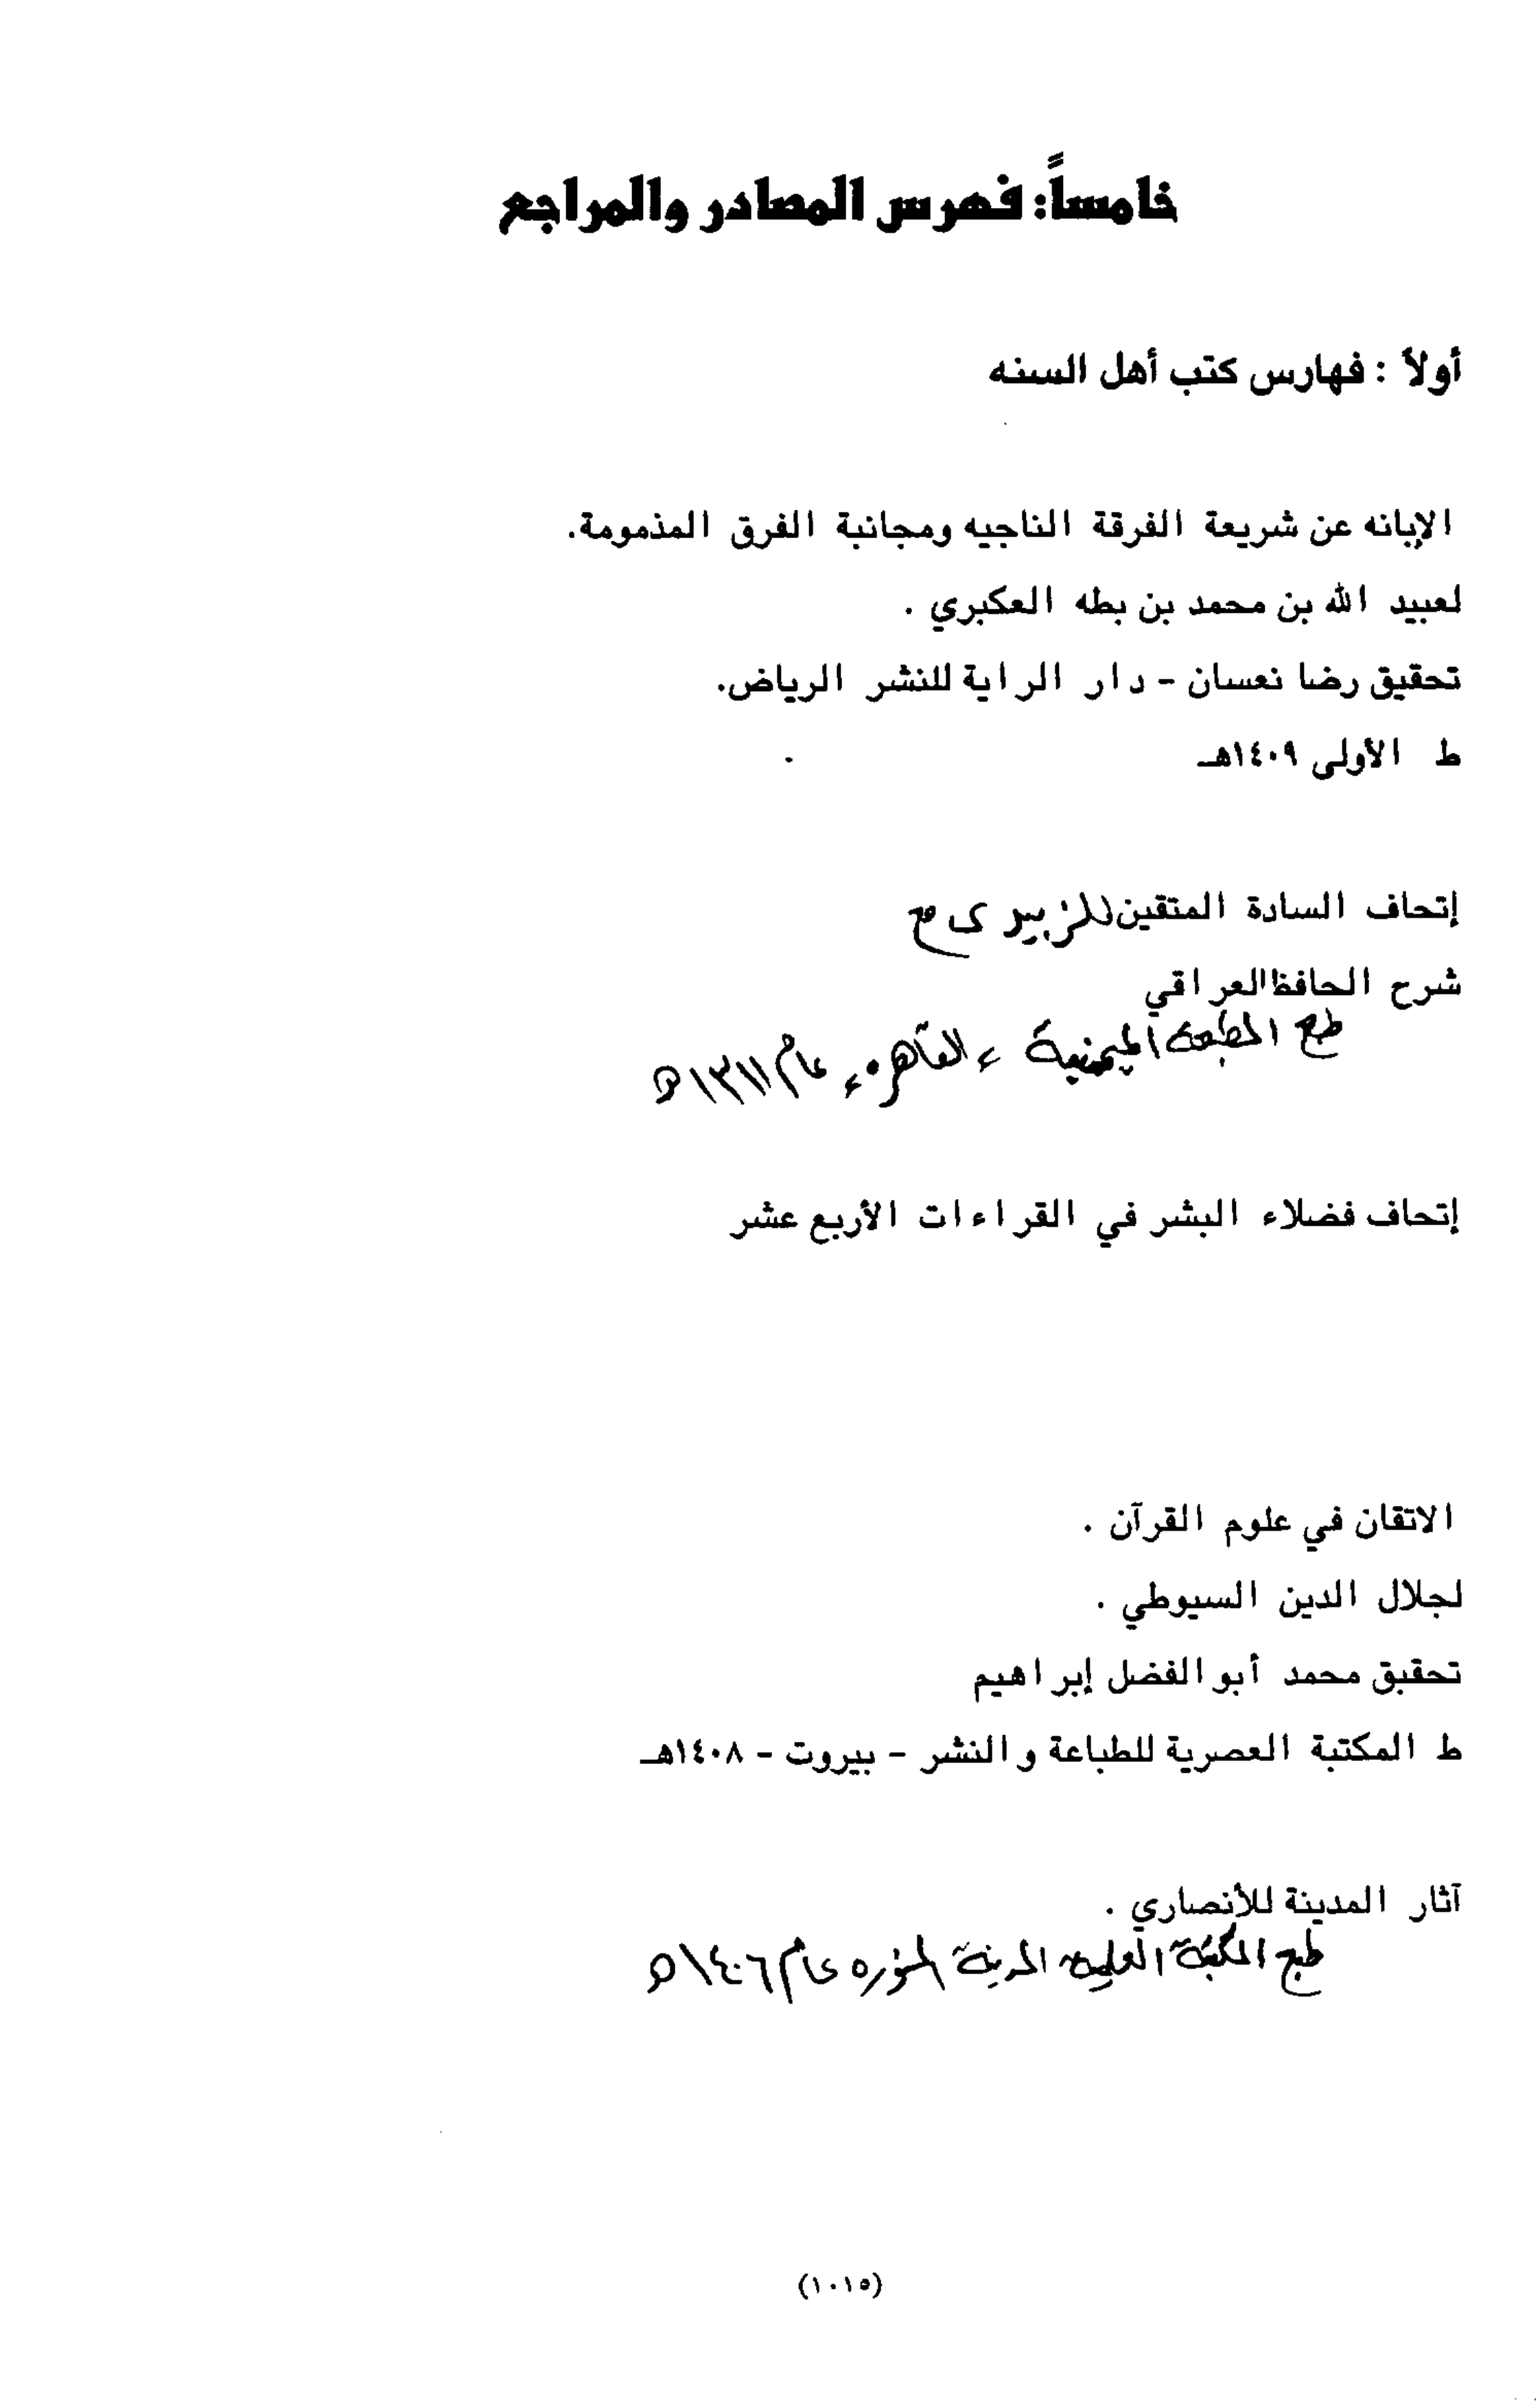 خامساً: فهرس المصادر والمراجع
أولاً : فهارس كتب أهل السنه
الإبانه عن شريعة الفرقة الناجيه ومجانبة الفرق المذمومة.
لعبيد الله بن محمد بن بطه العكبري .
تحقيق رضا نعسان - دار الراية للنشر الرياض.
ط الأولى ١٤٠٩هـ
إتحاف السادة المتقين للزبيدى مع
شرح الحافظ العراقي
طبع المطبعة الميمنية ، القاهرة ، عام ١٣١١ه
إتحاف فضلاء البشر في القراءات الأربع عشر
الاتقان في علوم القرآن .
لجلال الدين السيوطي .
تحقيق محمد أبو الفضل إبراهيم
ط المكتبة العصرية للطباعة والنشر - بيروت - ١٤٠٨هـ
آثار المدينة للأنصاري .
طبع المكتبة العلمية المدينة المنوره عام ١٤٠٦ه
(١٠١٥)